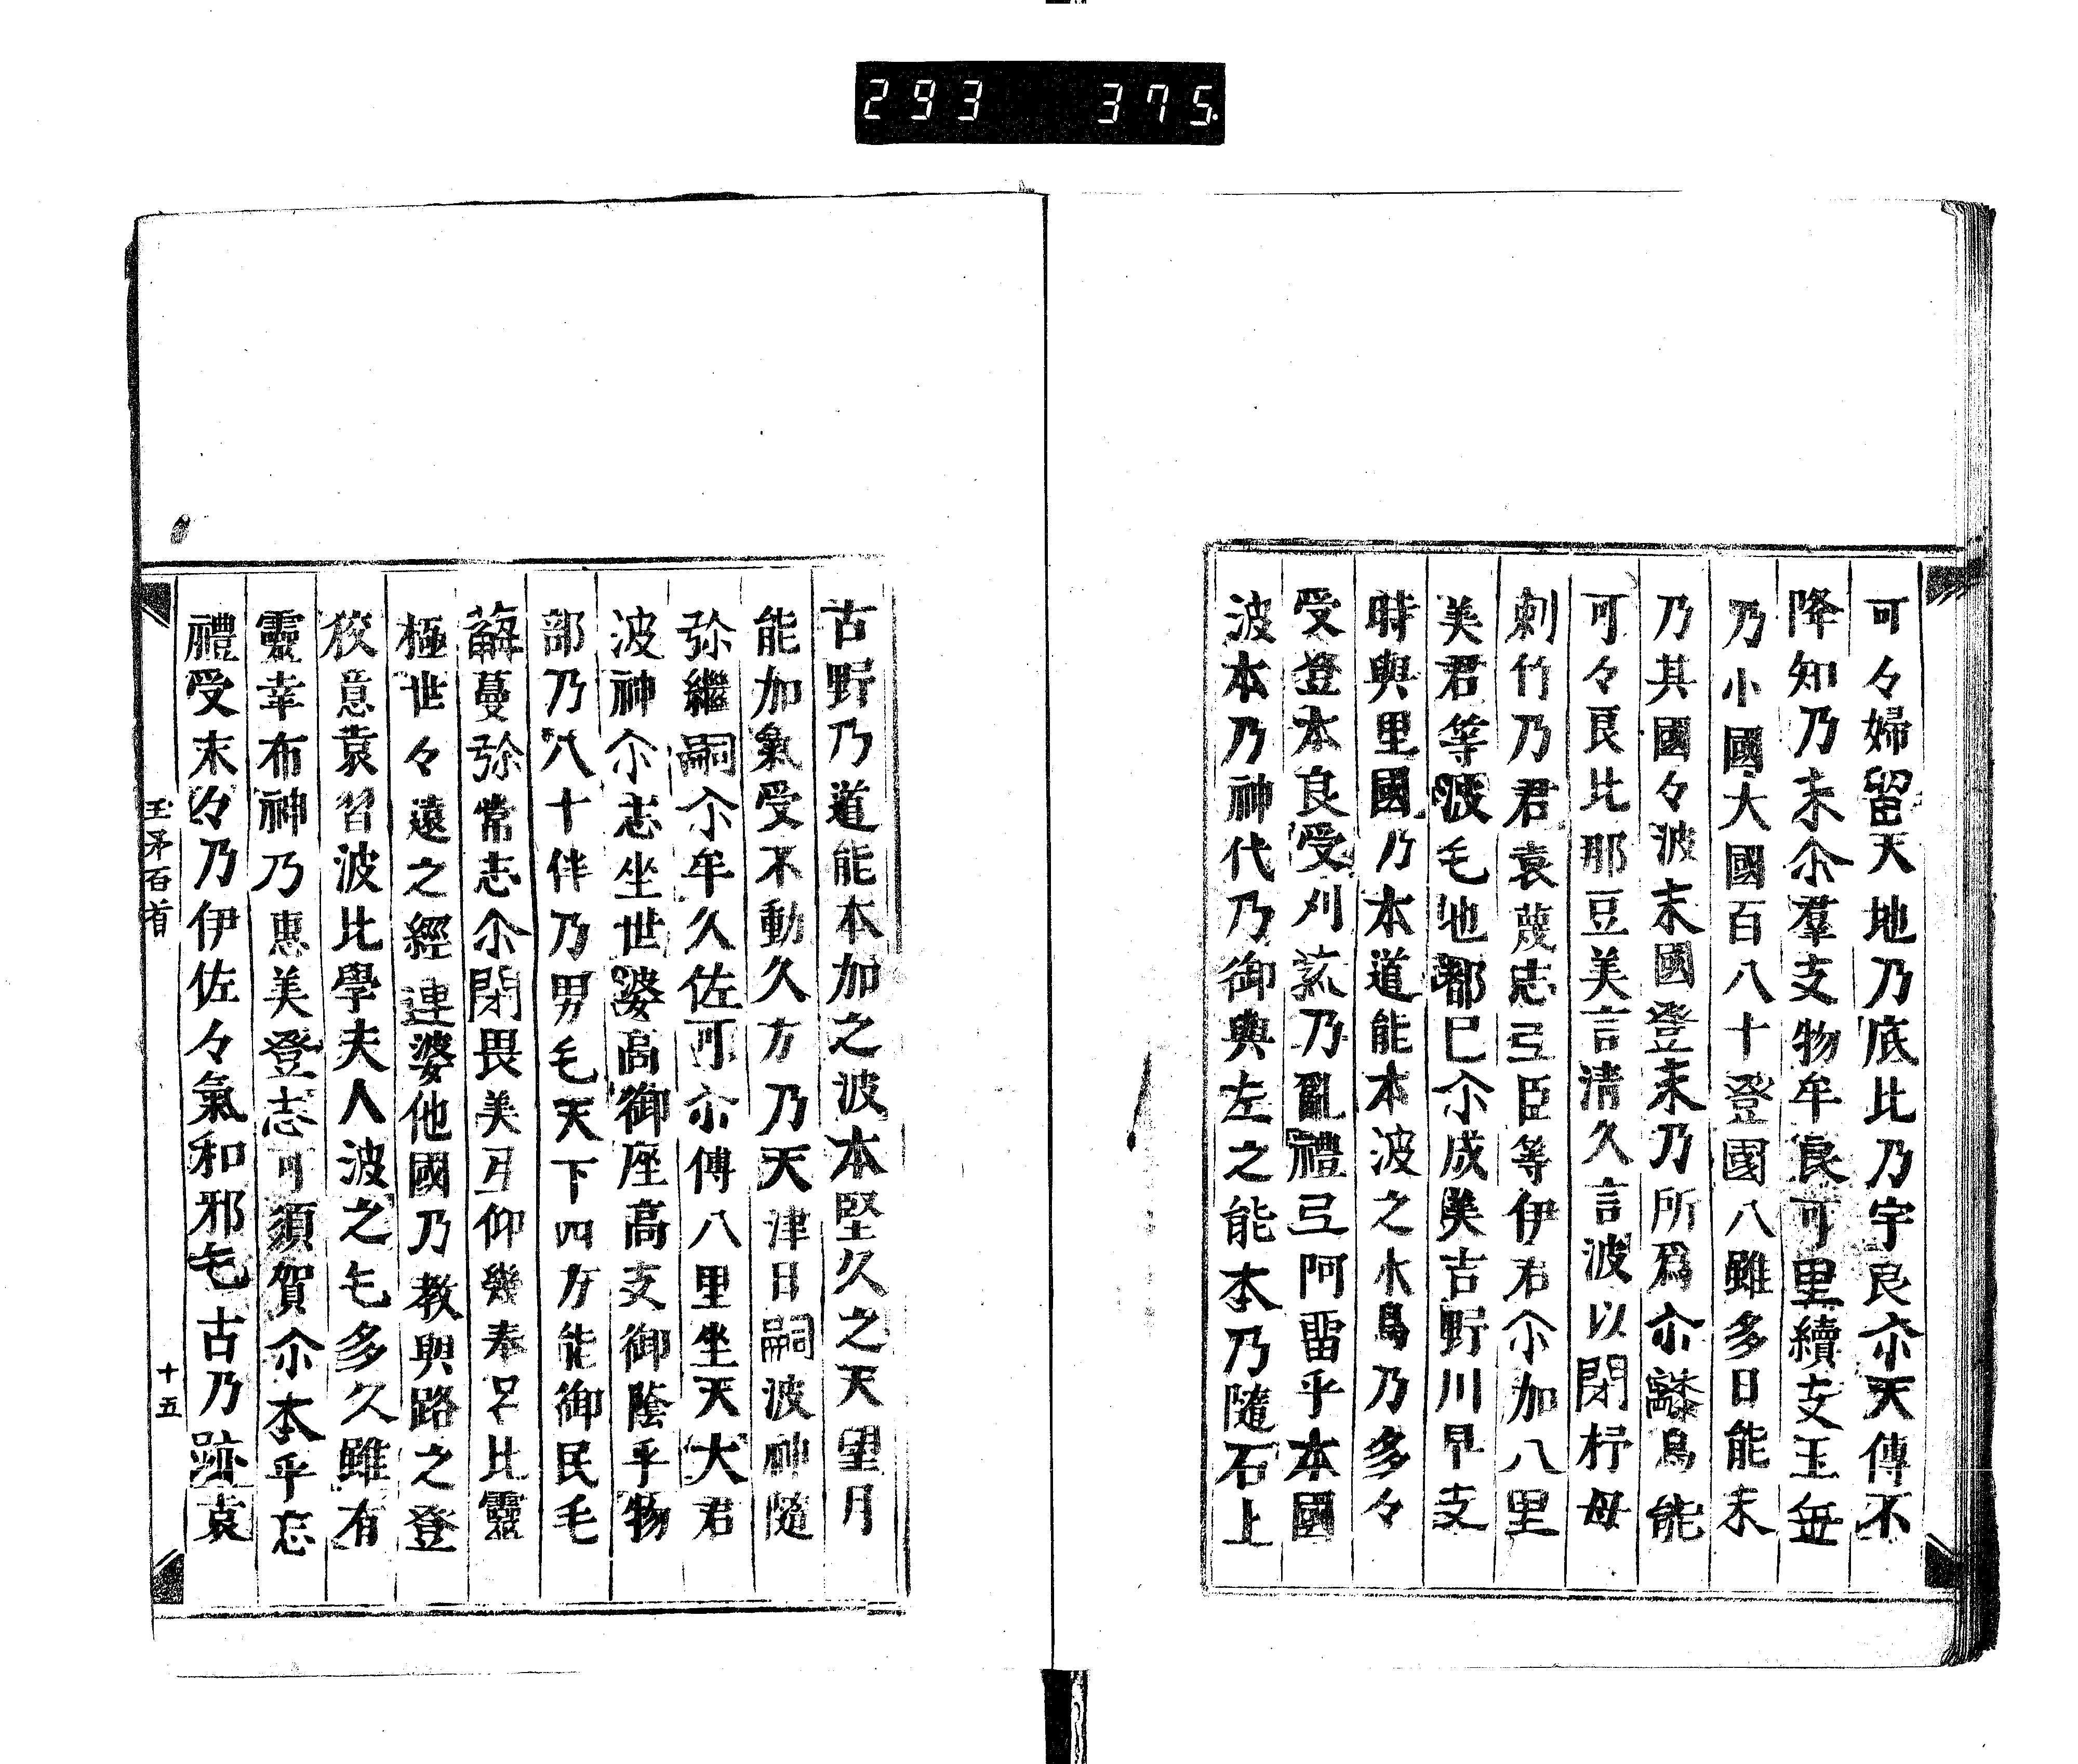 293 375
可々婦留天地乃底比乃宇良尒天傳不
降知乃末尒羣支物牟良可里續支王無
乃小國大國百八十登國八雖多日能末
乃其國々波末國登末乃所爲尒鳥能
可々良比那豆美言清久言波以閇杼母
刺竹乃君袁蔑志弖臣等伊君尒加八里
美君等波毛也都已尒成美吉野川早支
時與里國乃本道能本波之水鳥乃多々
受登本良受刈菰乃亂禮弖阿雷乎本國
波本乃神代乃御典左之能本乃隨石上
古野乃道能本加之波本堅久之天望月
能加氣受不動久方乃天津日嗣波神隨
弥繼嗣尒牟久佐可尒傳八里坐天大君
波神尒志坐世婆高御座高支御蔭乎物
部乃八十伴乃男毛天下四方能御民毛
蔓弥常志尒閇畏美弖仰幾奉呂比靈
極世々遠之經連婆他國乃教與路之登
狡意袁習波比學夫人波之毛多久雖有
靈幸布神乃惠美登志可須賀尒本乎忘
禮受末々乃伊佐々氣和邪毛古乃跡袁
玉矛百首 十五